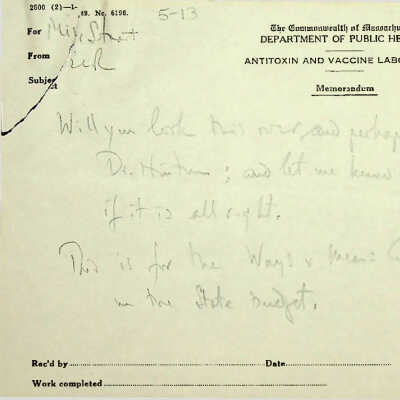 2500 (2)-1- 48. No. 6196.
5-13
The Commonwealth of Massachu
DEPARTMENT OF PUBLIC HE
ANTITOXIN AND VACCINE LABO
Memorandum
For Miss Stuart
From
Subject
Will you look this over, and perhap
Dr. Hinton; and let me know
if it is all right.
This is for the Ways & Means C
in the State Budget.
Rec'd by Date
Work completed